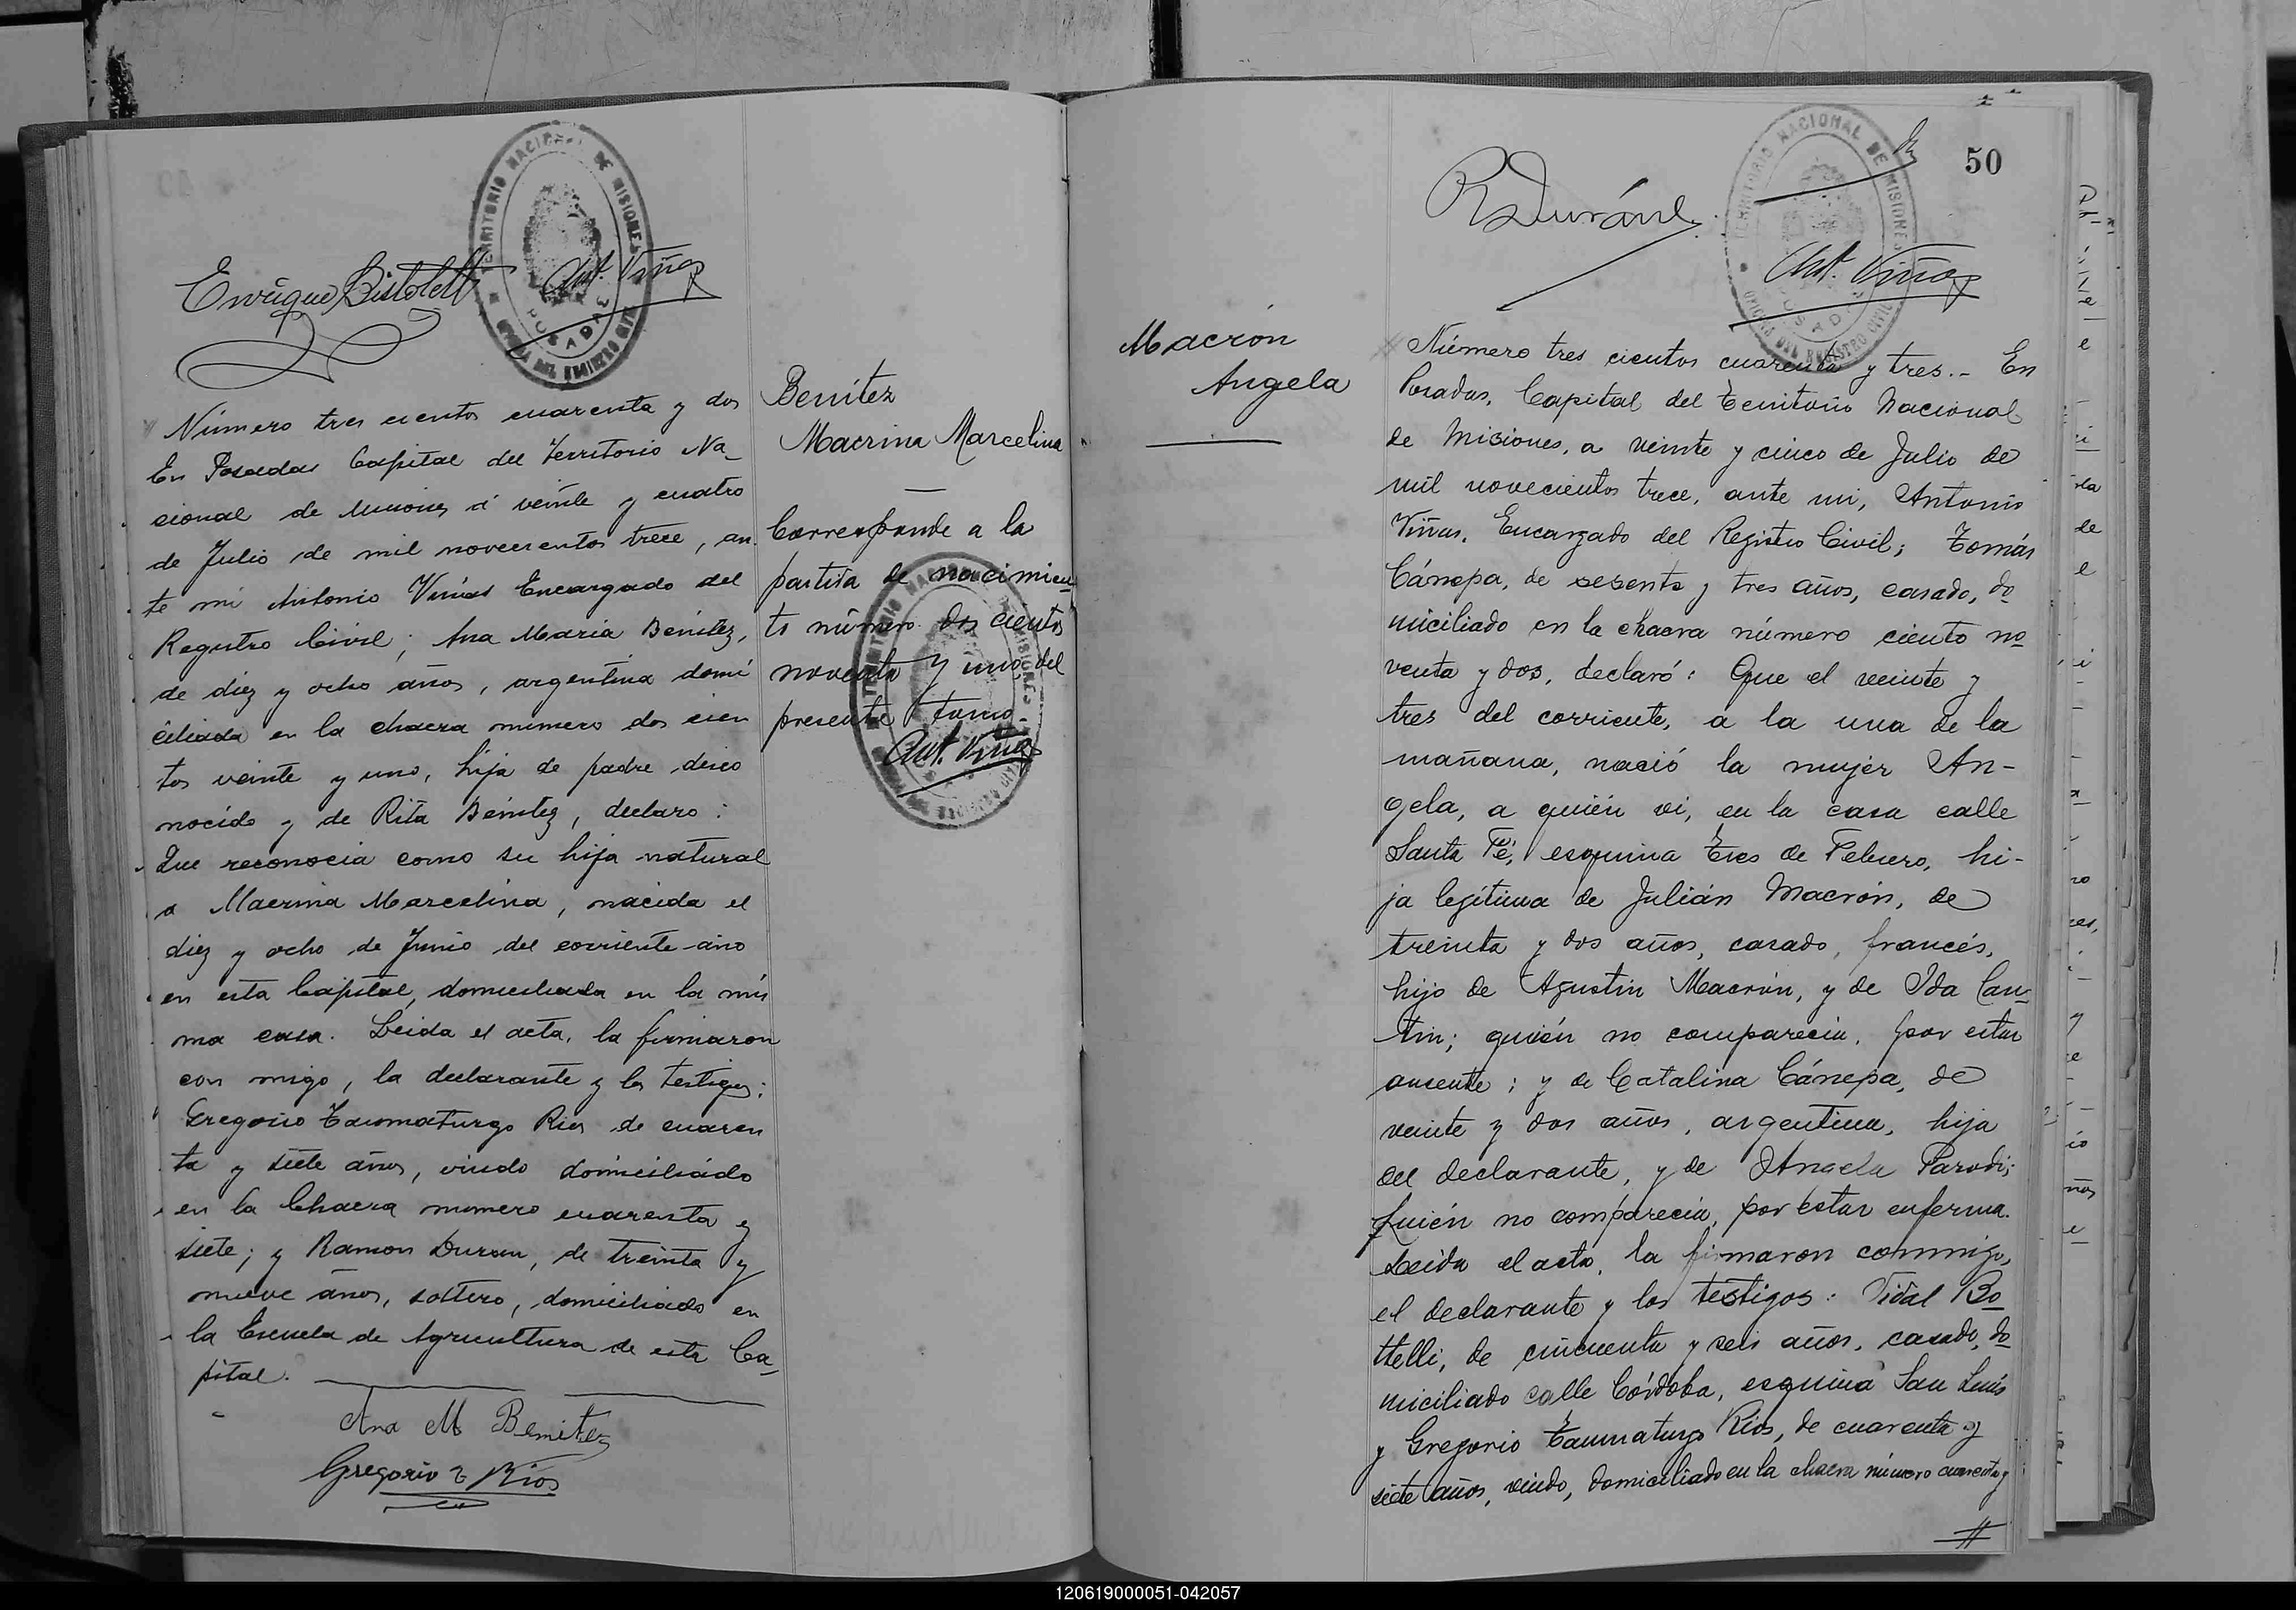 TERRITORIO NACIONAL DE MISIONES
POSADAS
OFICINA DEL REGISTRO CIVIL
Enrique Bistoletti
Ant. Viñas
Número tres cientos cuarenta y dos
En Posadas Capital del Territorio Na_
cional de Misiones á veinte y cuatro
de Julio de mil novecientos trece, an
te mi Antonio Viñas Encargado del
Registro Civil; Ana Maria Benitez,
de diez y ocho años, argentina domi
ciliada en la chacra numero dos cien
tos veinte y uno, hija de padre desco
nocido y de Rita Benitez, declaro:
Que reconocia como su hija natural
a Macrina Marcelina, nacida el
diez y ocho de Junio del corriente año
en esta Capital, domiciliada en la mis
ma casa. Leida el acta, la firmaron
con migo, la declarante y los testigos:
Gregorio Taumaturgo Rios de cuaren
ta y siete años, viudo domiciliado
en la Chacra numero cuarenta y
siete; y Ramon Duran, de treinta y
nueve años, soltero, domiciliado en
la Escuela de Agricultura de esta Ca_
pital.
Ana M Benitez
Gregorio T Rios
Benítez
Macrina Marcelina
Corresponde a la
partida de nacimien_
to número dos cientos
noventa y uno, del
presente tomo.
Ant. Viñas
50
R Durán
TERRITORIO NACIONAL DE MISIONES
POSADAS
OFICINA DEL REGISTRO CIVIL
Ant. Viñas
Macrón
Angela
Número tres cientos cuarenta y tres.- En
Posadas, Capital del Territorio Nacional
de Misiones, a veinte y cinco de Julio de
mil novecientos trece, ante mi, Antonio
Viñas, Encargado del Registro Civil; Tomás
Cánepa, de sesenta y tres años, casado, do_
miciliado en la chacra número ciento no_
venta y dos, declaró: Que el veinte y
tres del corriente, a la una de la
mañana, nació la mujer An-
gela, a quién vi, en la casa calle
Santa Fé, esquina Tres de Febrero, hi-
ja legítima de Julián Macrón, de
treinta y dos años, casado, francés,
hijo de Agustin Macrón, y de Ida Can_
tin; quién no comparecia, por estar
ausente; y de Catalina Cánepa, de
veinte y dos años, argentina, hija
del declarante, y de Angela Parodi;
quién no comparecia, por estar enferma.
Leida el acta, la firmaron conmigo,
el declarante y los testigos: Vidal Bo_
ttelli, de cincuenta y seis años, casado, do_
miciliado calle Córdoba, esquina San Luis
y Gregorio Taumaturgo Rios, de cuarenta y
siete años, viudo, domiciliado en la chacra número cuarenta y
120619000051-042057